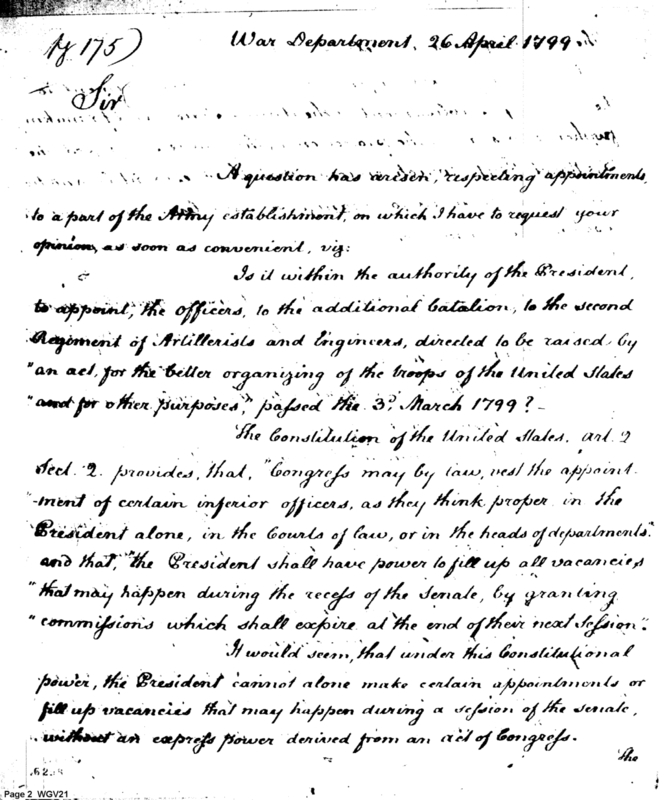 pg 175)
War Department, 26 April 1799.
Sir
A question has arisen, respecting appointments,
to a part of the Army establishment, on which I have to request your
opinion, as soon as convenient, viz:
Is it within the authority of the President,
to appoint, the officers, to the additional Batalion, to the second
Regiment of Artillerists and Engineers, directed to be raised by
"an act, for the better organizing of the troops of the United States
"and for other purposes," passed the 3d. March 1799?—
The Constitution of the United States, art. 2
Sect. 2. provides, that, "Congress may by law, vest the appoint-
-ment of certain inferior officers, as they think proper in the
President alone, in the Courts of law, or in the heads of departments."
and that, "the President shall have power to fill up all vacancies
"that may happen during the recess of the Senate, by granting
"commissions which shall expire at the end of their next Session."
It would seem, that under this Constitutional
power, the President cannot alone make certain appointments or
fill up vacancies that may happen during a session of the senate,
without an express power derived from an act of Congress.
The
Page 2 WGV21